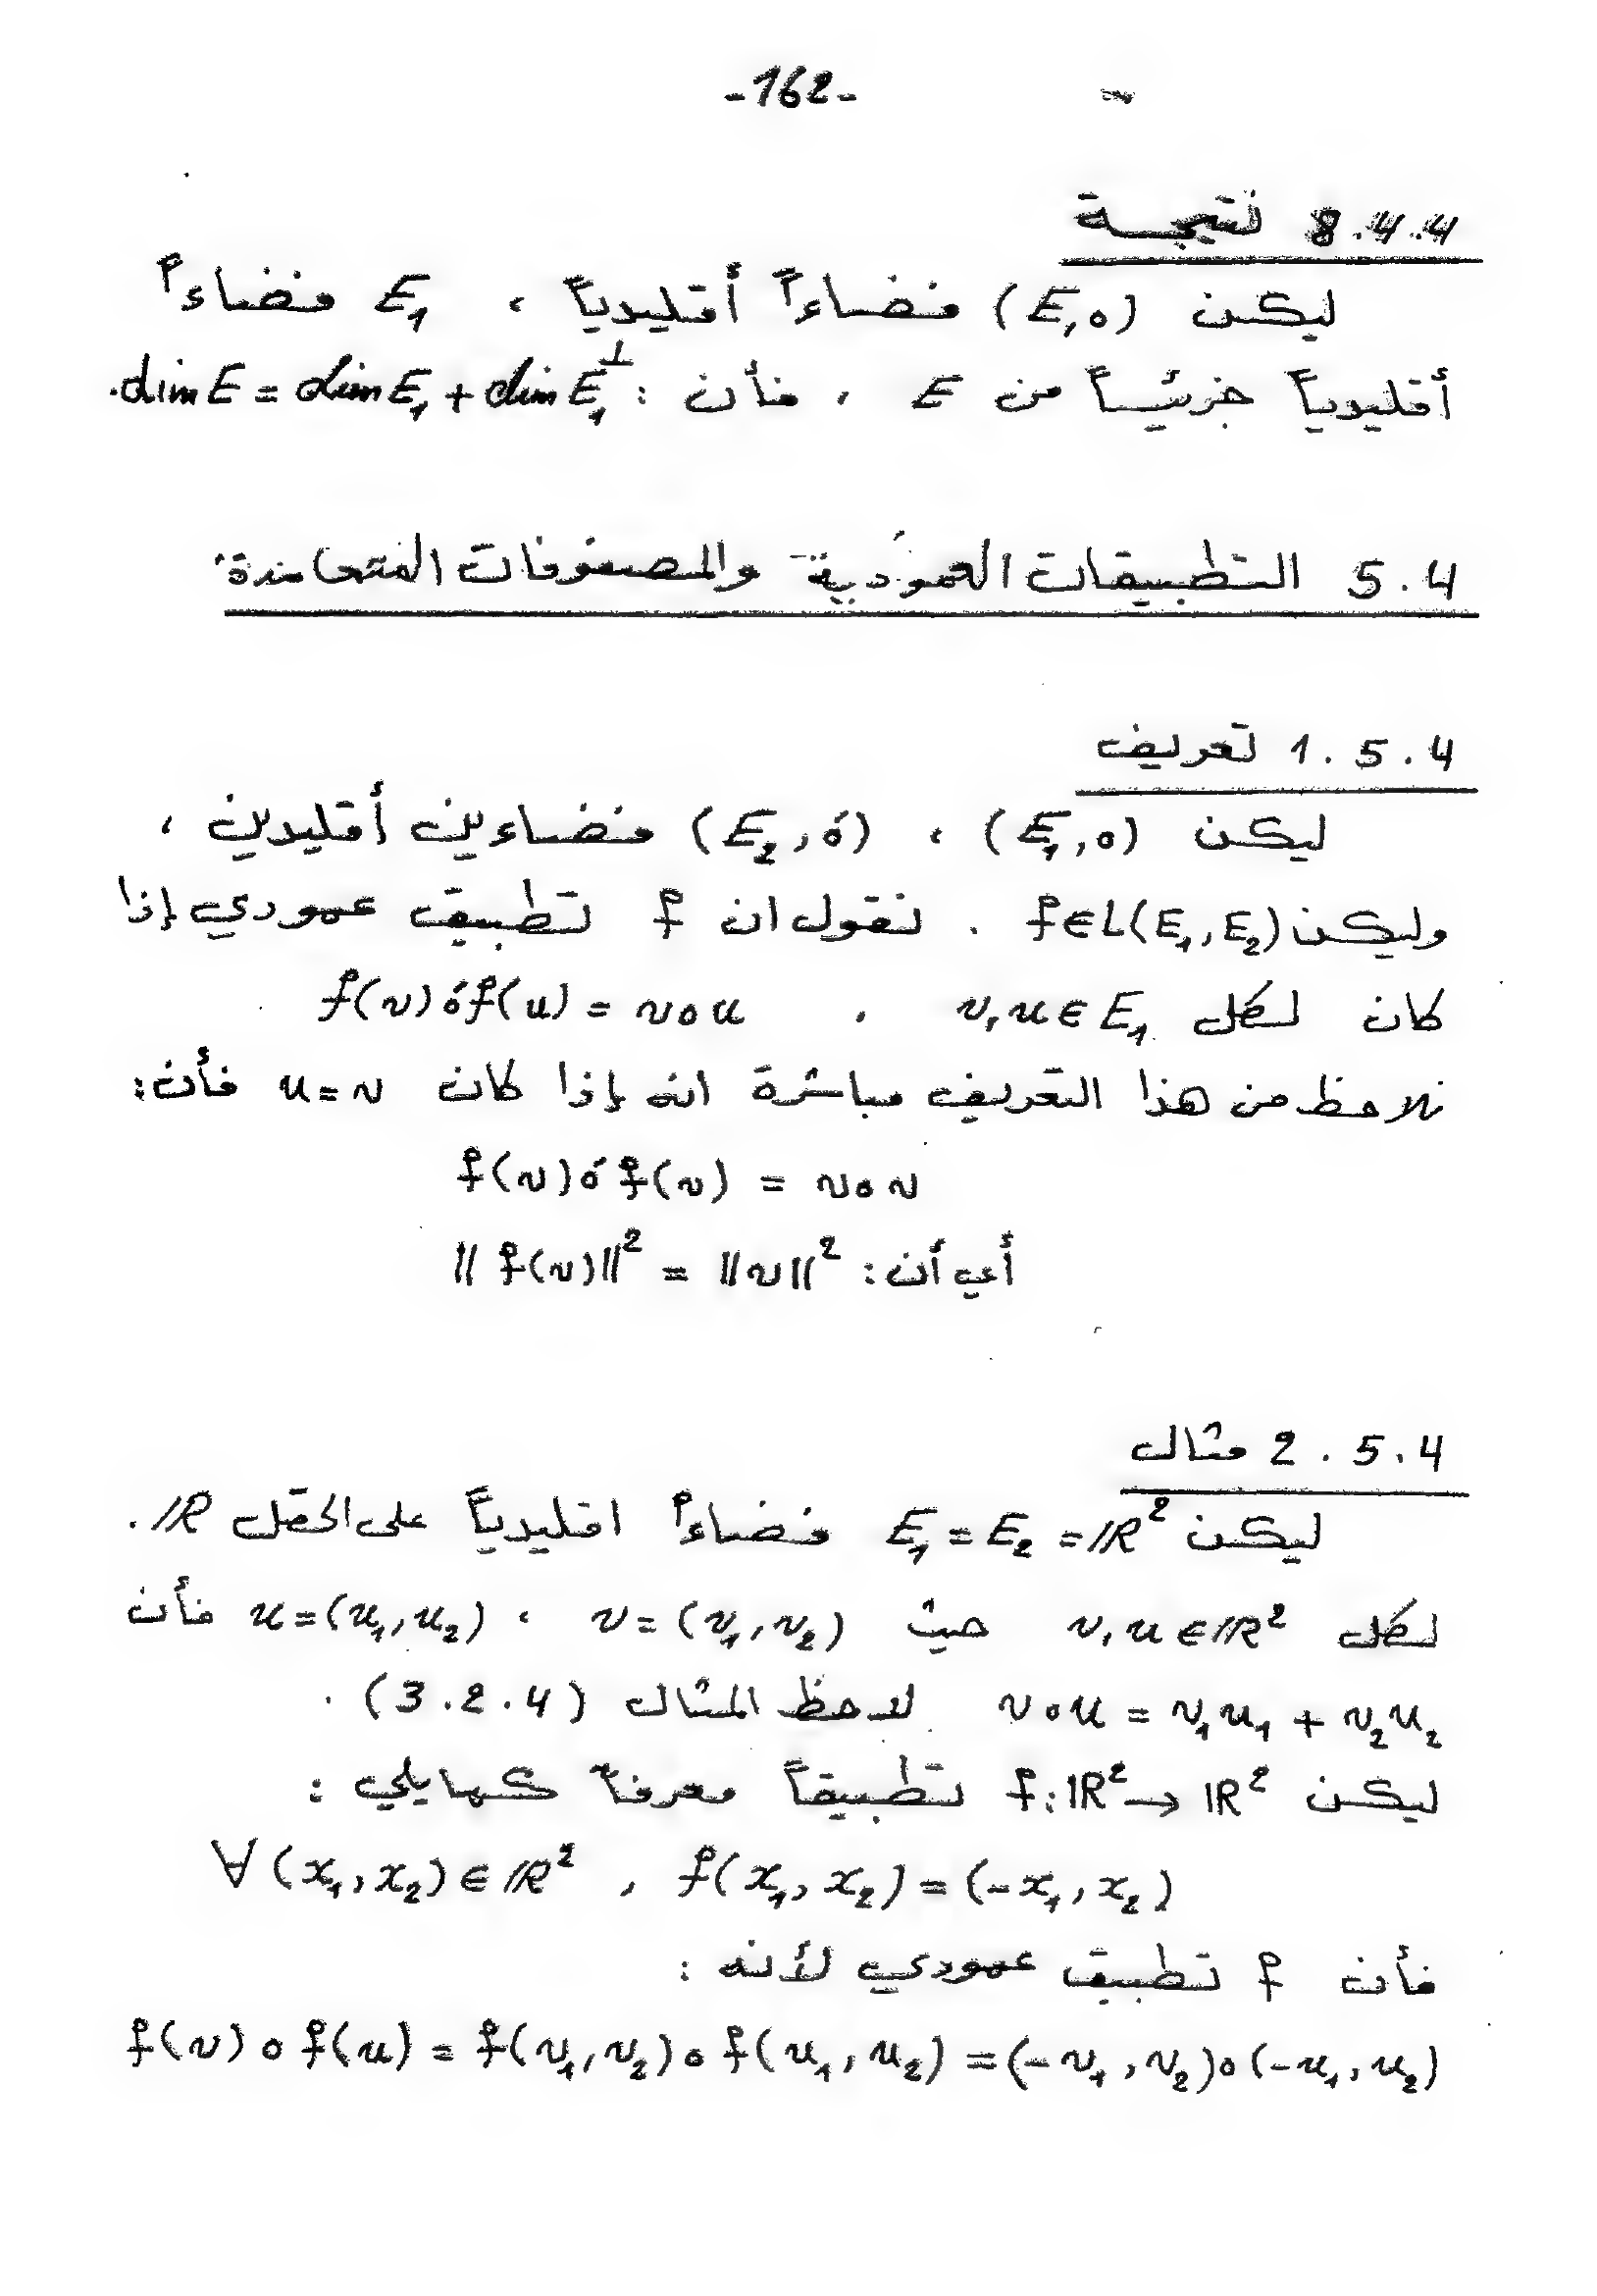 -162-
8.4.4 نتيجـــة
ليكن (E,o) فضاءاً أقليدياً ، E₁ فضاءاً
أقليدياً جزئياً من E ، فأن : dim E = dim E₁ + dim E₁^⊥.
5.4 التطبيقات العمودية والمصفوفات المتعامدة
1.5.4 تعريف
ليكن (E₁,o) ، (E₂,ó) فضاءين أقليدين ،
وليكن f∈L(E₁,E₂) . نقول ان f تطبيق عمودي إذا
كان لكل v,u ∈ E₁ ، f(v) ó f(u) = v o u
نلاحظ من هذا التعريف مباشرة انه إذا كان u = v فأن:
f(v) ó f(v) = v o v
أي أن: ‖f(v)‖² = ‖v‖²
2.5.4 مثال
ليكن E₁ = E₂ = ℝ² فضاءاً اقليدياً على الحقل ℝ.
لكل v,u ∈ ℝ² حيث v = (v₁,v₂) ، u = (u₁,u₂) فأن
v o u = v₁u₁ + v₂u₂ لاحظ المثال (3.2.4) .
ليكن f: ℝ² → ℝ² تطبيقاً معرفاً كما يلي :
∀ (x₁,x₂) ∈ ℝ² , f(x₁,x₂) = (-x₁,x₂)
فأن f تطبيق عمودي لأنه :
f(v) o f(u) = f(v₁,v₂) o f(u₁,u₂) = (-v₁,v₂) o (-u₁,u₂)